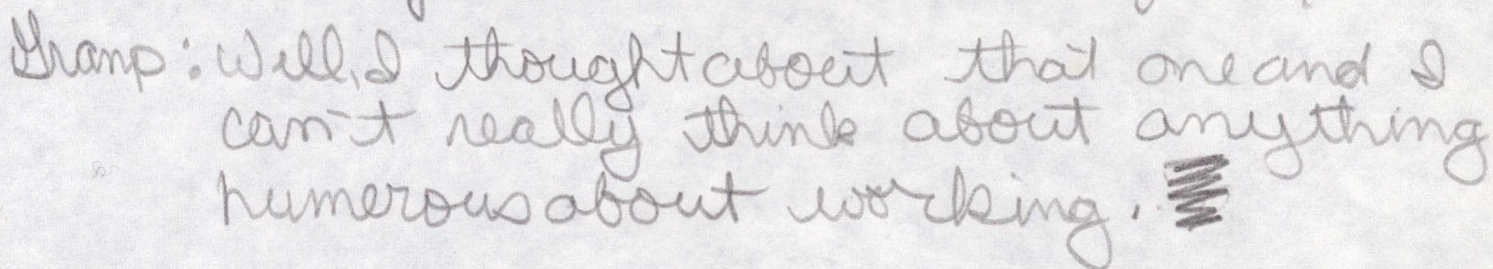 Gramp: Well, I thought about that one and I
can't really think about anything
humerous about working.